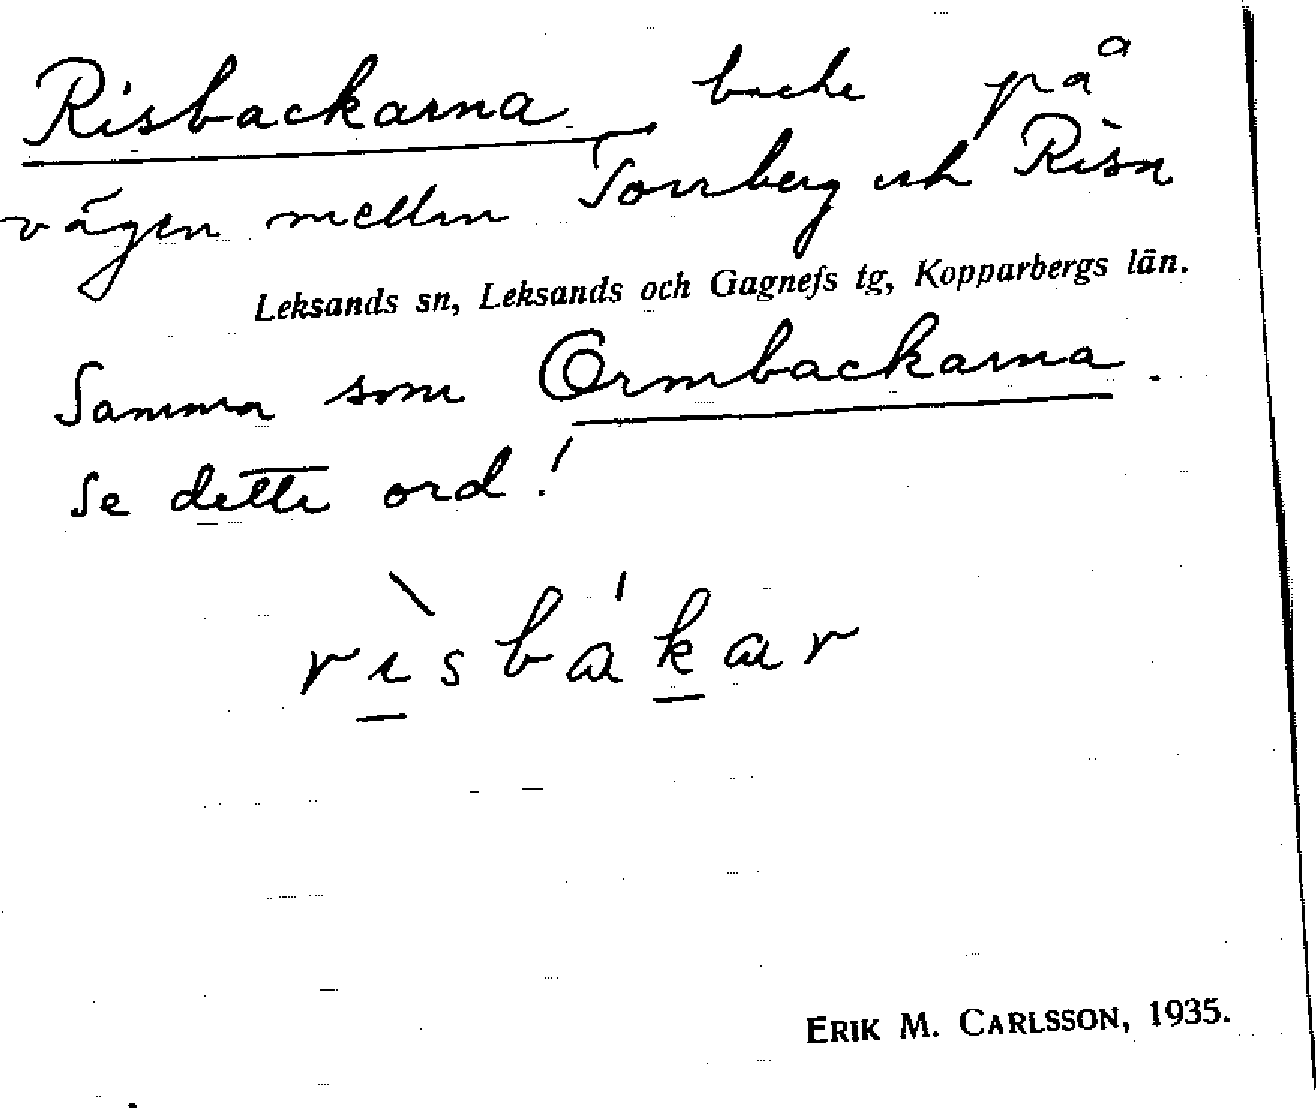 Risbackarna backe på
vägen mellan Torrberg och Risa
Leksands sn, Leksands och Gagnefs tg, Kopparbergs län.
Samma som Ormbackarna.
Se detta ord!
rìsbákar
ERIK M. CARLSSON, 1935.